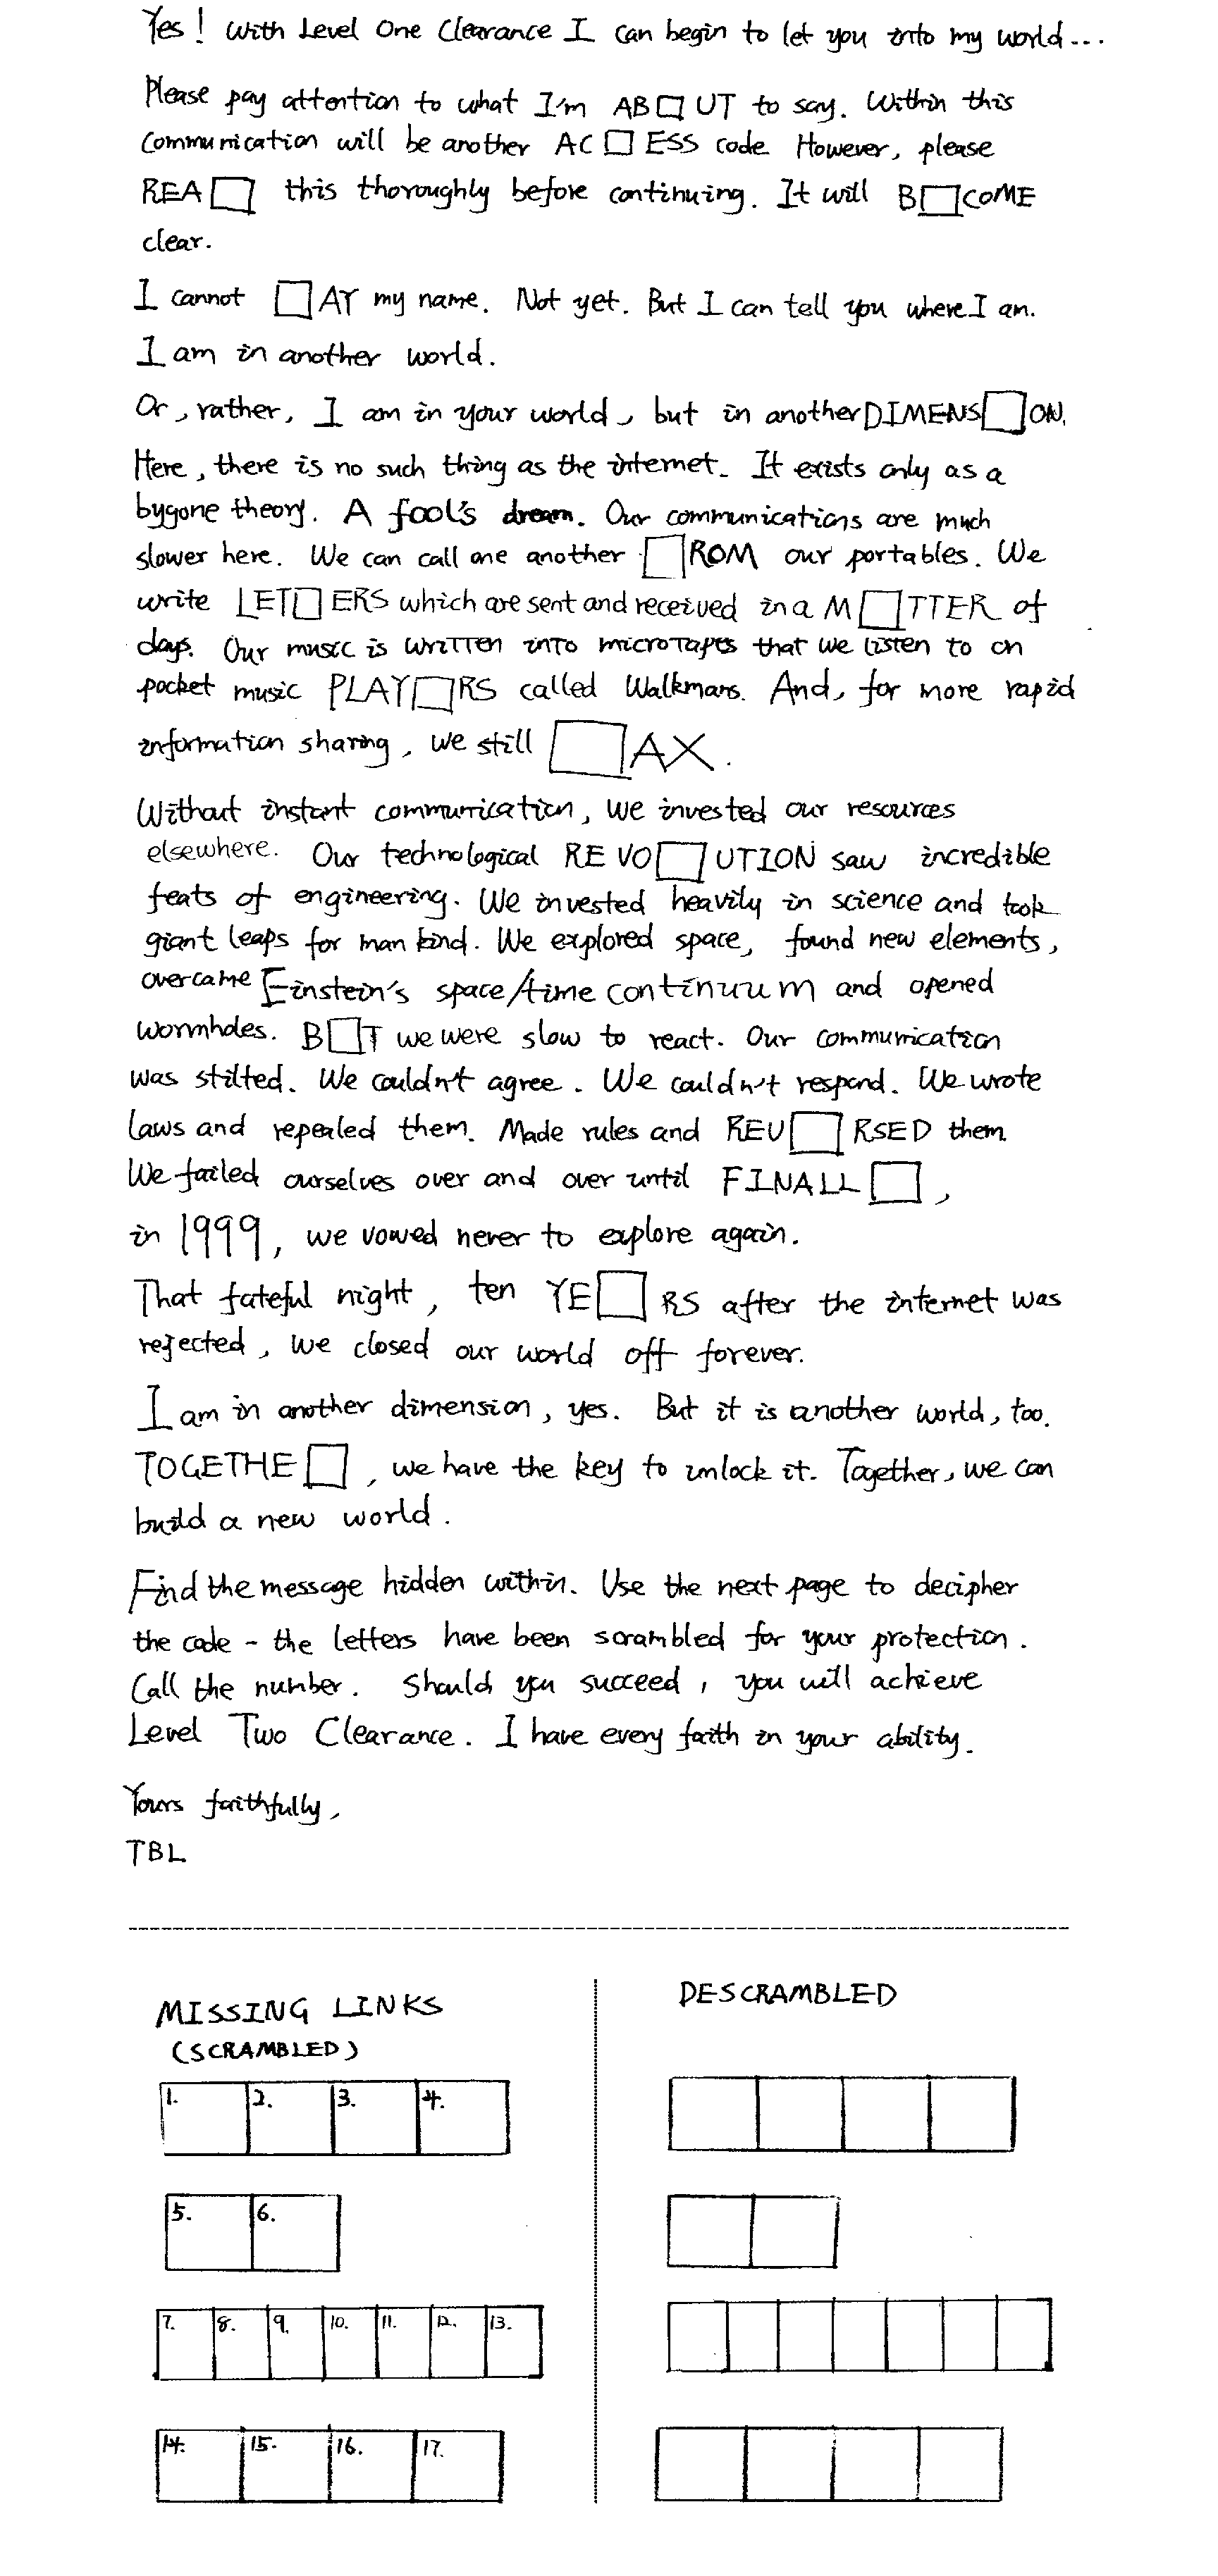 Yes! With Level One Clearance I can begin to let you into my world...
Please pay attention to what I'm AB□UT to say. Within this
communication will be another AC□ESS code. However, please
REA□ this thoroughly before continuing. It will B□COME
clear.
I cannot □AY my name. Not yet. But I can tell you where I am.
I am in another world.
Or, rather, I am in your world, but in another DIMENS□ON.
Here, there is no such thing as the internet. It exists only as a
bygone theory. A fool's dream. Our communications are much
slower here. We can call one another □ROM our portables. We
write LET□ERS which are sent and received in a M□TTER of
days. Our music is written into microtapes that we listen to on
pocket music PLAY□RS called Walkmans. And, for more rapid
information sharing, we still □AX.
Without instant communication, we invested our resources
elsewhere. Our technological REVO□UTION saw incredible
feats of engineering. We invested heavily in science and took
giant leaps for mankind. We explored space, found new elements,
overcame Einstein's space/time continuum and opened
wormholes. B□T we were slow to react. Our communication
was stilted. We couldn't agree. We couldn't respond. We wrote
laws and repealed them. Made rules and REV□RSED them
We failed ourselves over and over until FINALL□,
in 1999, we vowed never to explore again.
That fateful night, ten YE□RS after the internet was
rejected, we closed our world off forever.
I am in another dimension, yes. But it is another world, too.
TOGETHE□, we have the key to unlock it. Together, we can
build a new world.
Find the message hidden within. Use the next page to decipher
the code - the letters have been scrambled for your protection.
Call the number. Should you succeed, you will achieve
Level Two Clearance. I have every faith in your ability.
Yours faithfully,
TBL
MISSING LINKS
(SCRAMBLED)
DESCRAMBLED
1. 2. 3. 4.
5. 6.
7. 8. 9. 10. 11. 12. 13.
14. 15. 16. 17.